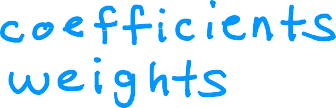 coefficients
weights